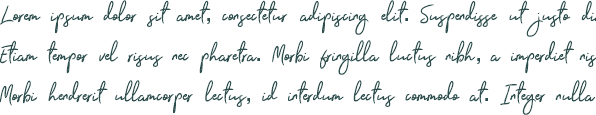 Lorem ipsum dolor sit amet, consectetur adipiscing elit. Suspendisse ut justo dui
Etiam tempor vel risus nec pharetra. Morbi fringilla luctus nibh, a imperdiet nis
Morbi hendrerit ullamcorper lectus, id interdum lectus commodo at. Integer nulla